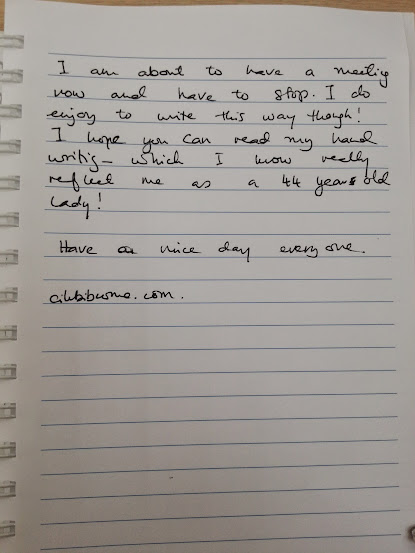 I am about to have a meeting
now and have to stop. I do
enjoy to write this way though!
I hope you can read my hand
writing - which I know really
reflect me as a 44 years old
Lady!
Have a nice day every one.